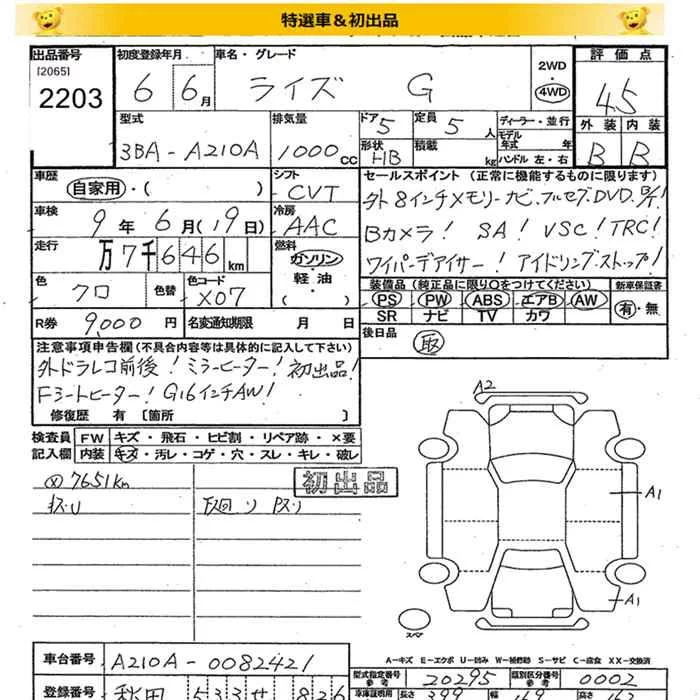 特選車&初出品
出品番号 [2065] 2203
初度登録年月 6 6月
車名・グレード ライズ G
2WD 4WD
評価点 4.5
外装 B 内装 B
型式 3BA-A210A
排気量 1000cc
ドア 5 定員 5人
形状 HB 積載 kg
ディーラー・並行
モデル年式 年
ハンドル 左・右
車歴 自家用・( )
シフト CVT
セールスポイント (正常に機能するものに限ります)
外8インチメモリーナビ、フルセグDVD、
Bカメラ! SA! VSC! TRC!
ワイパーデアイサー! アイドリングストップ!
車検 9年6月(19日)
冷房 AAC
走行 万7千646km
燃料 ガソリン・軽油・( )
色 クロ 色替 色コード X07
装備品 (純正品に限り○をつけてください)
PS PW ABS エアB AW
SR ナビ TV カワ
新車保証書 有・無
R券 9,000円 名変通知期限 月 日
後日品 取
注意事項申告欄(不具合内容等は具体的に記入して下さい)
外ドラレコ前後! ミラーヒーター! 初出品!
Fシートヒーター! G16インチAW!
修復歴 有 [箇所 ]
検査員記入欄 FW キズ・飛石・ヒビ割・リペア跡・×要
内装 キズ・汚レ・コゲ・穴・スレ・キレ・破レ
7651km
初出品
A2
A1
A1
スペア
A-キズ E-エクボ U-凹み W-補修跡 S-サビ C-腐食 XX-交換済
車台番号 A210A-0082421
型式指定番号 参考 20295 類別区分番号 参考 0002
登録番号 秋田 533せ 826
車庫証明用 長さ 399 幅 169 高さ 162